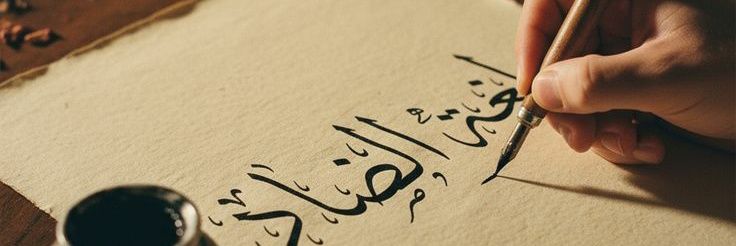 لغة الضاد